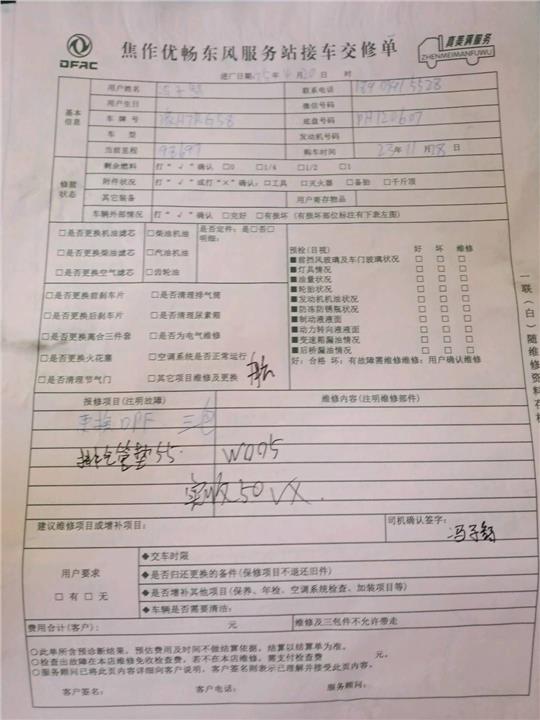 DFAC
焦作优畅东风服务站接车交修单
真美满服务
ZHENMEIMANFUWU
进厂日期 年 月 20 日 时
基本信息
用户姓名 联系电话
用户生日 微信号码
车牌号 底盘号码 PH120607
车型 发动机号码
当前里程 93697 购车时间 23年11月28日
修前状态
剩余燃料 打“√”确认 □0 □1/4 □1/2 □1
附件状况 打“√”或打“×”确认: □工具 □灭火器 □备胎 □千斤顶
其它装备 用户寄存物品
车辆外部情况 打“√”确认 □完好 □有损坏 (有损坏部位标注有下表左图)
□是否更换机油滤芯 □柴油机油
□是否更换柴油滤芯 □汽油机油
□是否更换空气滤芯 □齿轮油
是否定件: 是□否□
明细:
□是否更换前刹车片 □是否清理排气筒
□是否更换后刹车片 □是否清理尿素箱
□是否更换离合三件套 □是否为电气维修
□是否更换火花塞 □空调系统是否正常运行
□是否清理节气门 □其它项目维修及更换
预检(目视) 好 坏 维修
■前挡风玻璃及车门玻璃状况 □ □ □
■灯具情况 □ □ □
■油量状况 □ □ □
■轮胎状况 □ □ □
■发动机机油状况 □ □ □
■防冻防锈瓶状况 □ □ □
■制动液液面 □ □ □
■动力转向液液面 □ □ □
■变速箱漏油情况 □ □ □
■后桥漏油情况 □ □ □
好: 合格 坏: 有故障需维修维修: 用户确认维修
一联(白)随维修资料存档
报修项目(注明故障) 维修内容(注明维修部件)
更换DPF 三包
排气管垫55. W005
实收50 VX.
建议维修项目或增补项目:
司机确认签字:
用户要求
□有 □无
◆交车时限
◆是否归还更换的备件(保修项目不退还旧件)
◆是否增补其他项目(保养、年检、空调系统检查、加装项目等)
◆车辆是否需要清洁:
费用合计(客户): 元 维修及三包件不允许带走
○此单所含预诊断结果, 预估费用及时间不做结算依据, 结算以结算单为准。
○检查出故障在本店维修免收检查费, 若不在本店维修, 需支付检查费 元。
○服务顾问已将此页内容详细向客户说明, 客户签名则表示已理解并接受此页内容。
客户签名: 客户电话: 服务顾问: